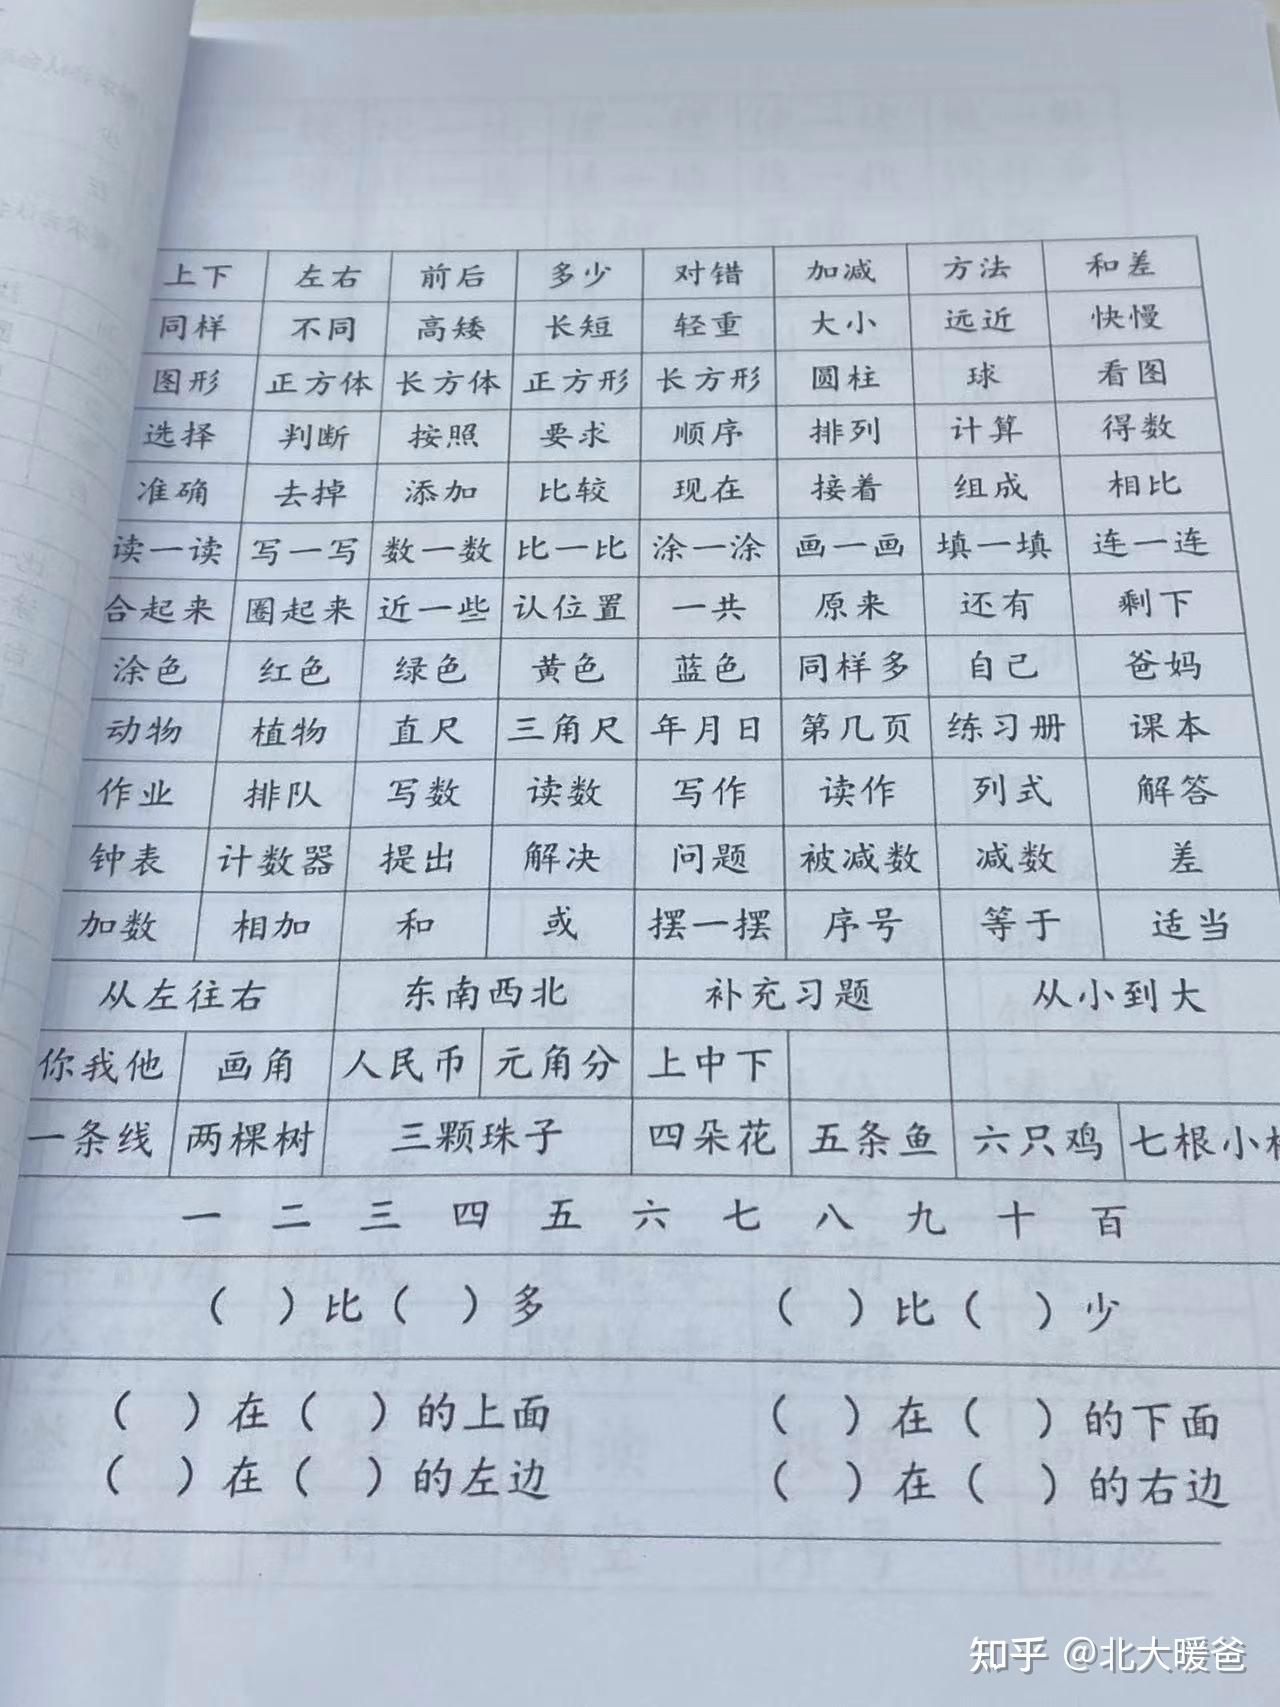 上下 左右 前后 多少 对错 加减 方法 和差
同样 不同 高矮 长短 轻重 大小 远近 快慢
图形 正方体 长方体 正方形 长方形 圆柱 球 看图
选择 判断 按照 要求 顺序 排列 计算 得数
准确 去掉 添加 比较 现在 接着 组成 相比
读一读 写一写 数一数 比一比 涂一涂 画一画 填一填 连一连
合起来 圈起来 近一些 认位置 一共 原来 还有 剩下
涂色 红色 绿色 黄色 蓝色 同样多 自己 爸妈
动物 植物 直尺 三角尺 年月日 第几页 练习册 课本
作业 排队 写数 读数 写作 读作 列式 解答
钟表 计数器 提出 解决 问题 被减数 减数 差
加数 相加 和 或 摆一摆 序号 等于 适当
从左往右 东南西北 补充习题 从小到大
你我他 画角 人民币 元角分 上中下
一条线 两棵树 三颗珠子 四朵花 五条鱼 六只鸡 七根小
一 二 三 四 五 六 七 八 九 十 百
（ ）比（ ）多 （ ）比（ ）少
（ ）在（ ）的上面 （ ）在（ ）的下面
（ ）在（ ）的左边 （ ）在（ ）的右边
知乎 @北大暖爸